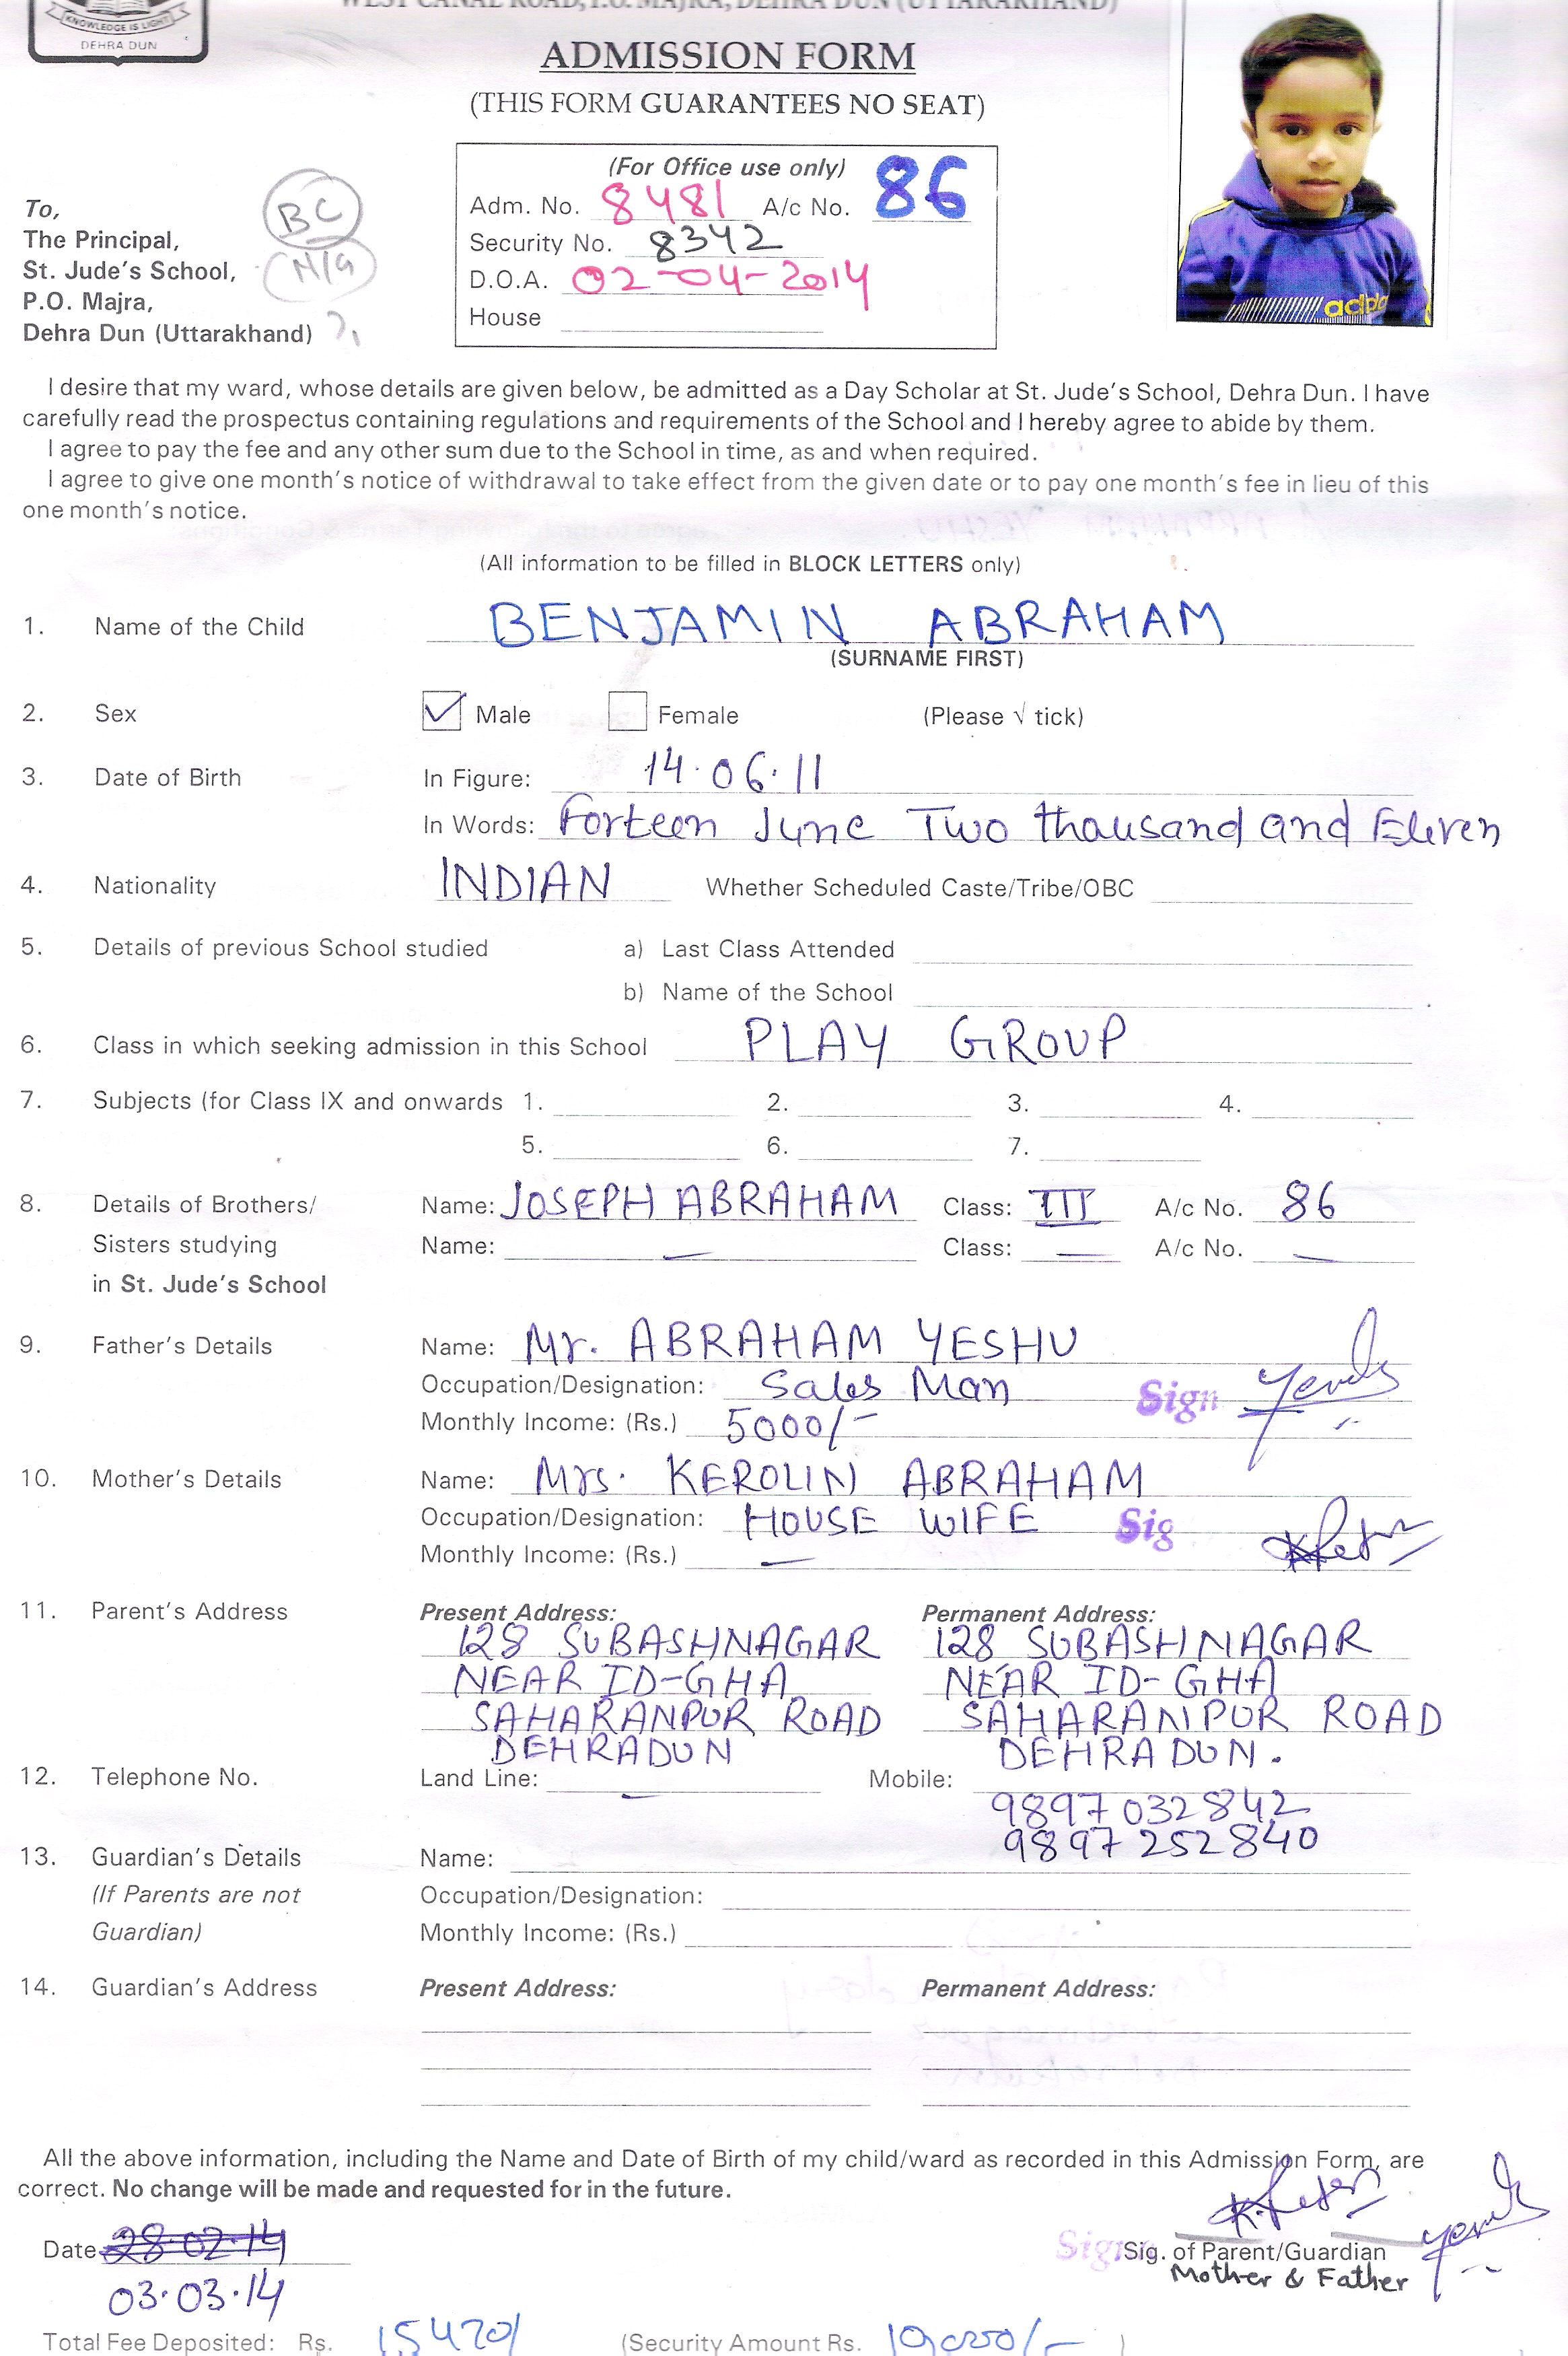 WEST CANAL ROAD, P.O. MAJRA, DEHRA DUN (UTTARAKHAND)
KNOWLEDGE IS LIGHT
DEHRA DUN
ADMISSION FORM
(THIS FORM GUARANTEES NO SEAT)
(For Office use only)
Adm. No. 8481 A/c No. 86
Security No. 8342
D.O.A. 02-04-2014
House
BC
N/G
To,
The Principal,
St. Jude's School,
P.O. Majra,
Dehra Dun (Uttarakhand)
adida
I desire that my ward, whose details are given below, be admitted as a Day Scholar at St. Jude's School, Dehra Dun. I have
carefully read the prospectus containing regulations and requirements of the School and I hereby agree to abide by them.
I agree to pay the fee and any other sum due to the School in time, as and when required.
I agree to give one month's notice of withdrawal to take effect from the given date or to pay one month's fee in lieu of this
one month's notice.
(All information to be filled in BLOCK LETTERS only)
1. Name of the Child BENJAMIN ABRAHAM
(SURNAME FIRST)
2. Sex Male Female (Please √ tick)
3. Date of Birth In Figure: 14.06.11
In Words: Forteen June Two thousand and Eleven
4. Nationality INDIAN Whether Scheduled Caste/Tribe/OBC
5. Details of previous School studied a) Last Class Attended
b) Name of the School
6. Class in which seeking admission in this School PLAY GROUP
7. Subjects (for Class IX and onwards 1. 2. 3. 4.
5. 6. 7.
8. Details of Brothers/ Name: JOSEPH ABRAHAM Class: III A/c No. 86
Sisters studying Name: — Class: — A/c No. —
in St. Jude's School
9. Father's Details Name: Mr. ABRAHAM YESHU
Occupation/Designation: Sales Man Sign
Monthly Income: (Rs.) 5000/-
10. Mother's Details Name: Mrs. KEROLIN ABRAHAM
Occupation/Designation: HOUSE WIFE Sig
Monthly Income: (Rs.) —
11. Parent's Address Present Address: Permanent Address:
128 SUBASHNAGAR 128 SUBASHNAGAR
NEAR ID-GHA NEAR ID-GHA
SAHARANPUR ROAD SAHARANPUR ROAD
DEHRADUN DEHRADUN.
12. Telephone No. Land Line: — Mobile:
9897032842
9897252840
13. Guardian's Details Name:
(If Parents are not Occupation/Designation:
Guardian) Monthly Income: (Rs.)
14. Guardian's Address Present Address: Permanent Address:
All the above information, including the Name and Date of Birth of my child/ward as recorded in this Admission Form, are
correct. No change will be made and requested for in the future.
Date 28.02.14
Sign Sig. of Parent/Guardian
Mother & Father
03.03.14
Total Fee Deposited: Rs. 15470/ (Security Amount Rs. 10,000/- )